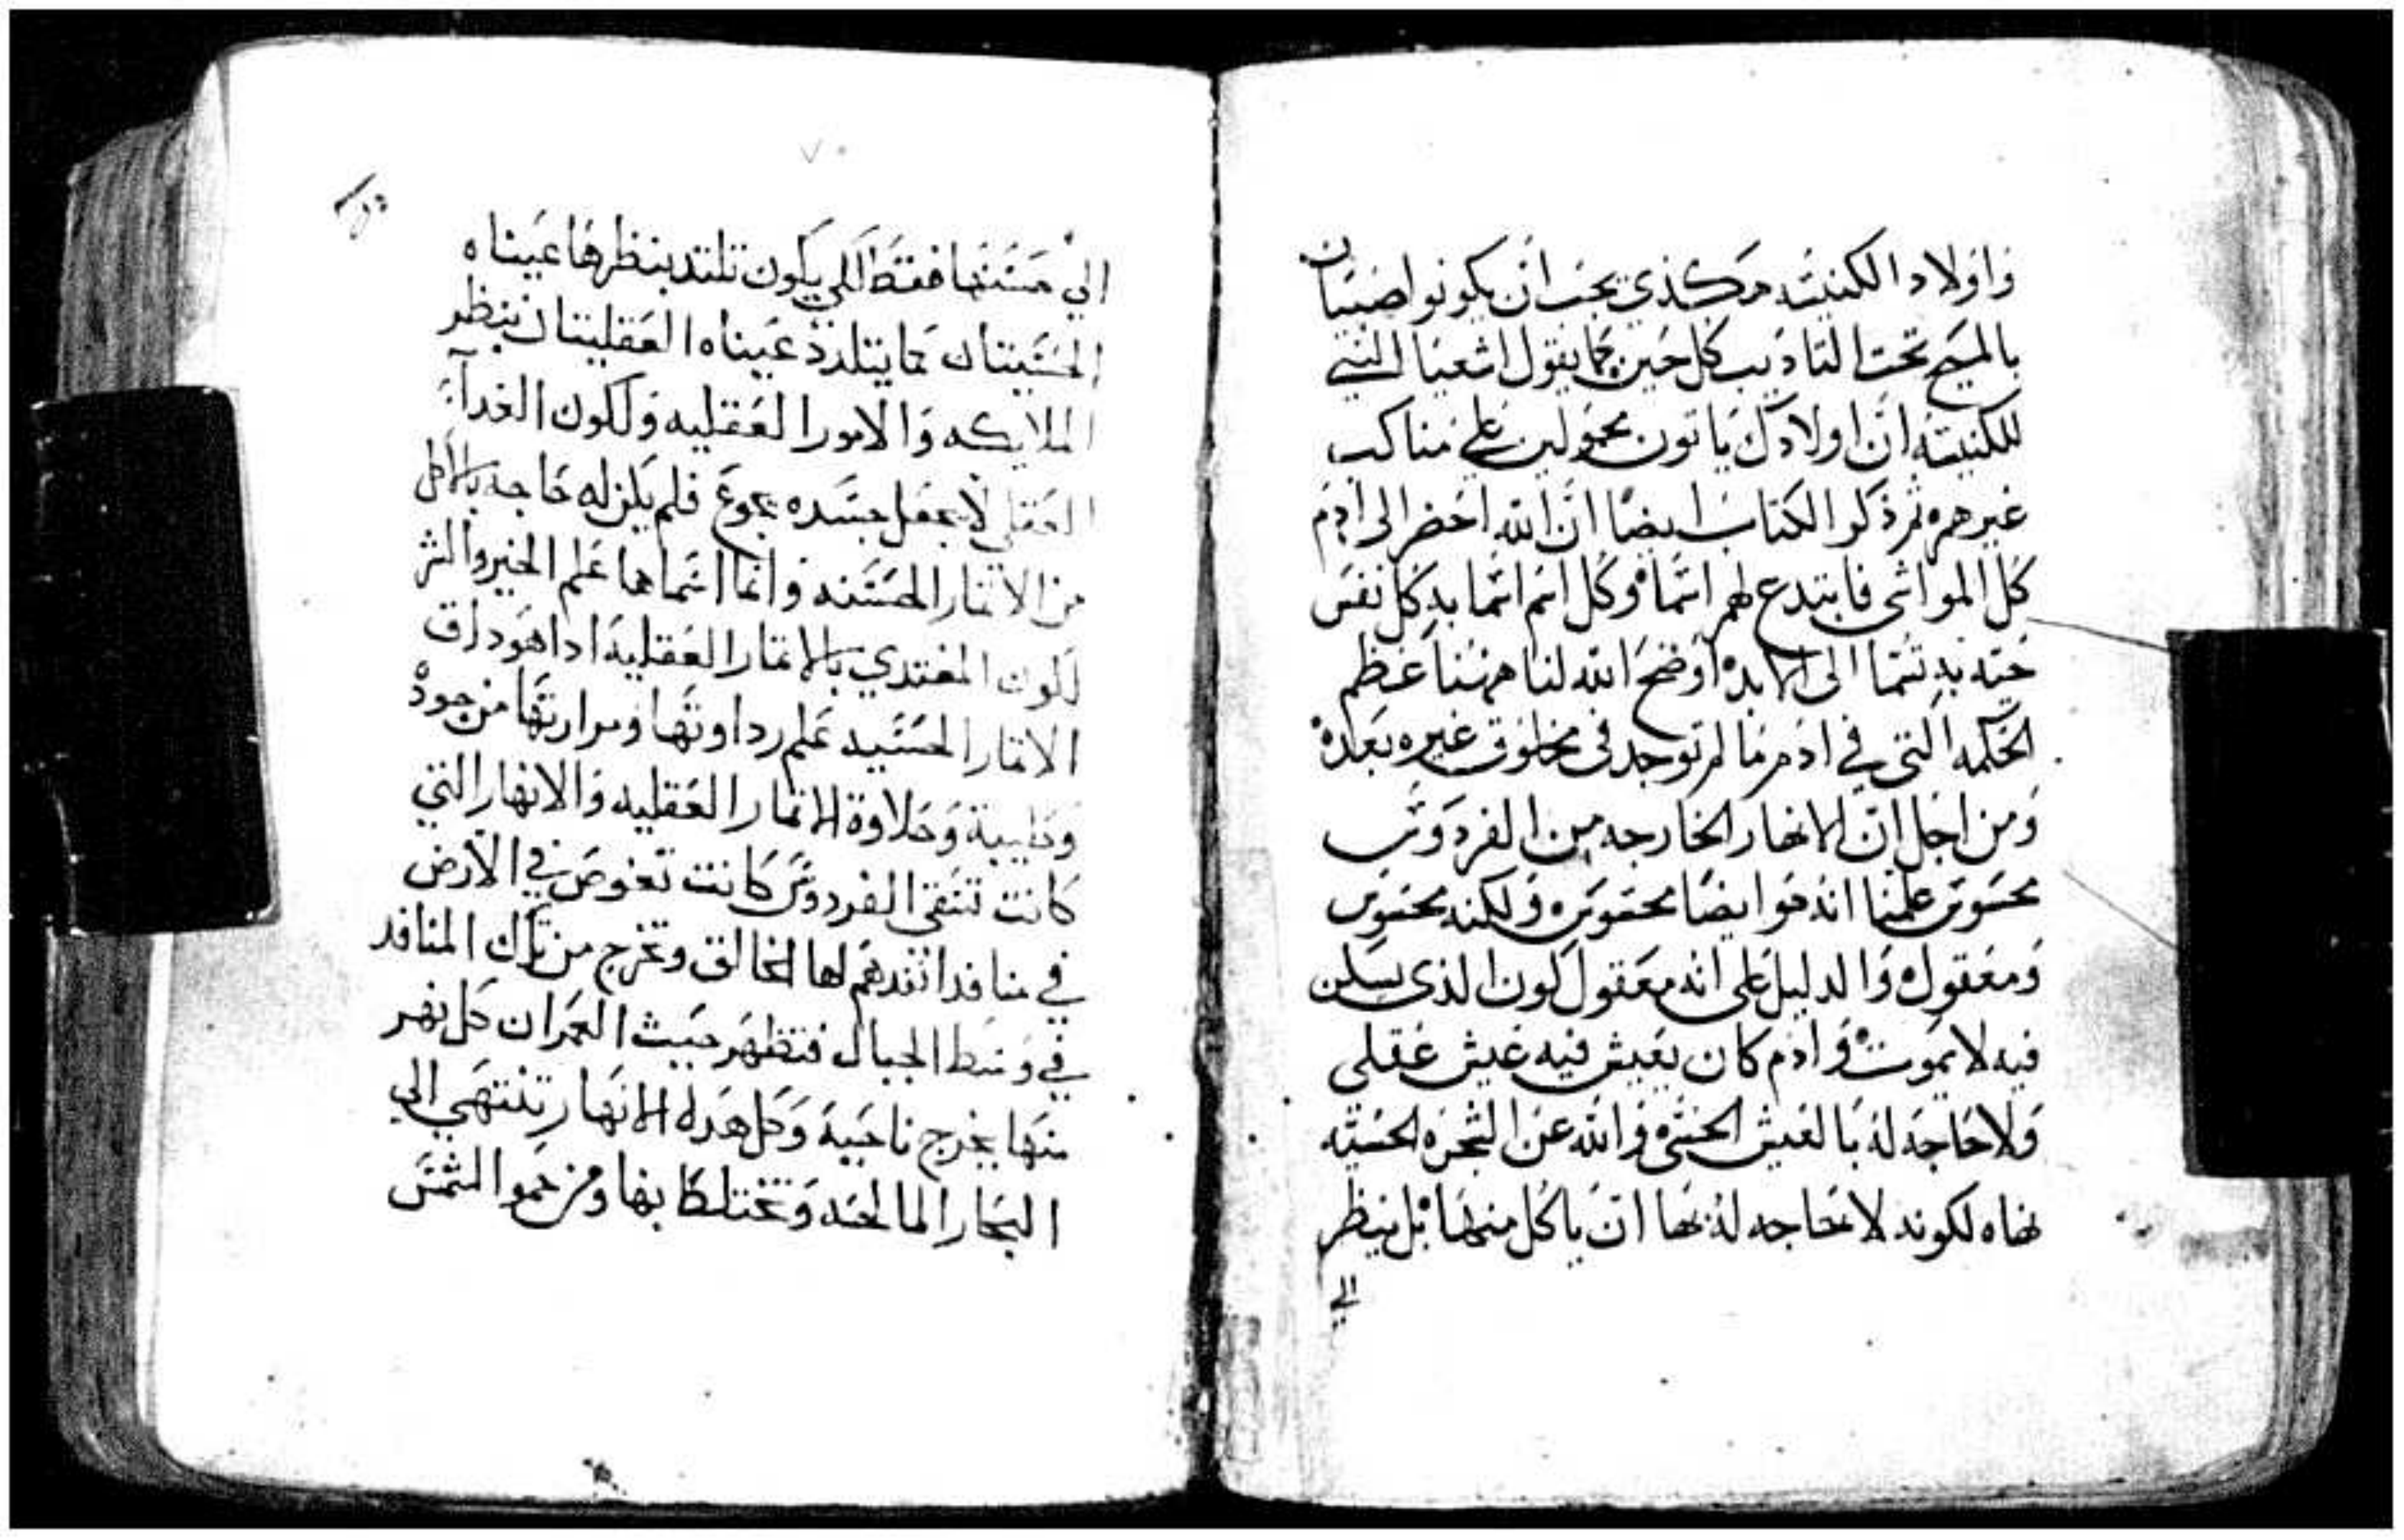 واولاد الكنيسه هكذي يجب ان يكونوا صبيان
بالمسيح تحت التاديب كل حين كما يقول اشعيا النبي
للكنيسه ان اولادك ياتون محمولين علي مناكب
غيرهم ثم ذكر الكتاب ايضا ان الله احضر الى ادم
كل المواشى فابتدع لهم اسما وكل اسم اسما به كل نفس
حيه به تسما الى الابد اوضح الله لنا ههنا عظم
الحكمه التى في ادم ما لم توجد فى مخلوق غيره بعده
ومن اجل ان الانهار الخارجه من الفردوس
محسوس علمنا انه هو ايضا محسوس ولكنه محسوس
ومعقول والدليل على انه معقول لكون الذى يسكن
فيه لا يموت وادم كان يعيش فيه عيش عقلى
ولا حاجه له بالعيش الحسى والله عن الشجره الحسيه
نهاه لكونه لا حاجه له بها ان ياكل منها بل ينظر
الي
٧٠
الي حسنها فقط لكي يكون تلتد بنظرها عيناه
الحسيتان كما يتلدد عيناه العقليتان بنظر
الملايكه والامور العقليه ولكون الغدآ
العقلي لا يجعل جسده يجوع فلم يكن له حاجه بالاكل
من الاتمار الحسنه وانما اسماها علم الخير والشر
لكون المغتدي بالاتمار العقلية ادا هو داق
الاتمار الحسيه علم رداوتها ومرارتها من جودة
وطيبة وحلاوة الاتمار العقليه والانهار التي
كانت تسقي الفردوس كانت تغوص في الارض
في منافد اتقدهم لها الخالق وتخرج من تلك المنافد
في وسط الجبال فتظهر حيث العمران كل نهر
منها يخرج ناحية وكل هده الانهار تنتهي الي
البحار المالحه وتختلط بها ومن حموا الشمس